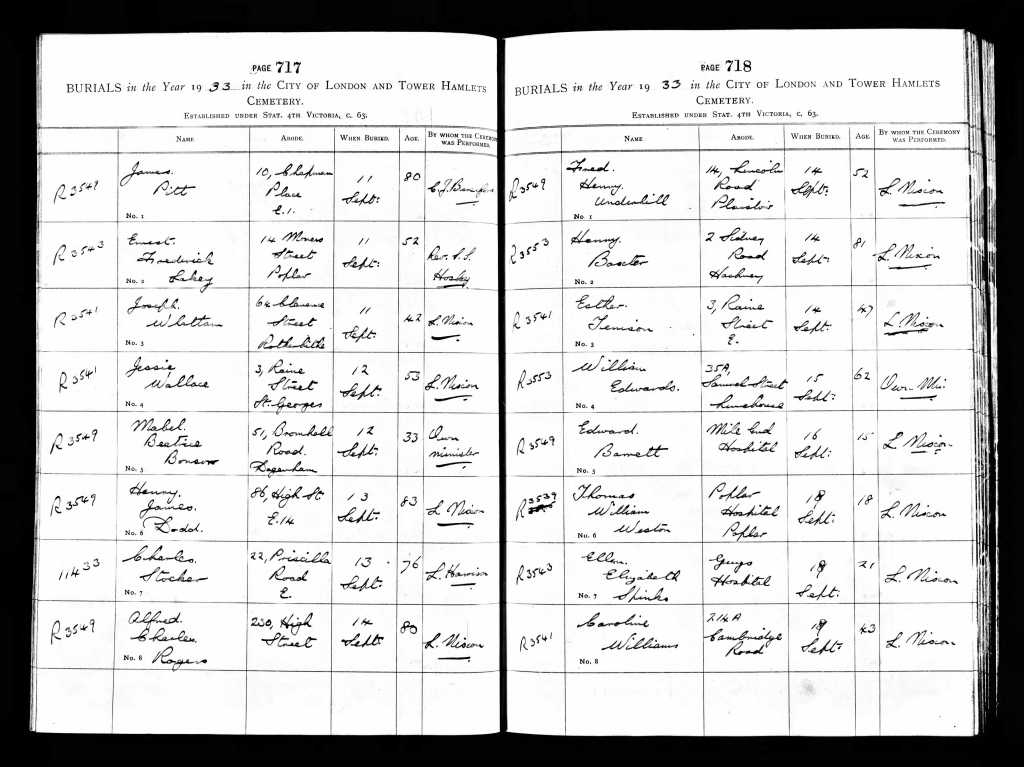 PAGE 717
BURIALS in the Year 19 33 in the CITY OF LONDON AND TOWER HAMLETS
CEMETERY.
ESTABLISHED UNDER STAT. 4TH VICTORIA, C. 63.
NAME ABODE. WHEN BURIED. AGE. BY WHOM THE CEREMONY WAS PERFORMED.
R3549 James. Pitt No. 1 10, Chapman Place E.1. 11 Sept: 80
R3543 Ernest. Frederick Lakey No. 2 14 Street Poplar 11 Sept: 52 Rev.
R3541 Joseph. No. 3 64 Clarence Street Rotherhithe 11 Sept: 42 L. Nixon
R3541 Jessie Wallace No. 4 3, Raine Street St. Georges 12 Sept: 53 L. Nixon
R3549 Mabel. Beatrice No. 5 51, Road. Dagenham 12 Sept: 33 Own minister
R3549 Henry. James. Dodd. No. 6 86, High St. E.14 13 Sept: 83 L Nixon
11433 Charles. Stocker No. 7 22, Priscilla Road E. 13 Sept: 76 L. Harrison
R3549 Alfred. Charles. Rogers No. 8 230, High Street 14 Sept: 80 L. Nixon
PAGE 718
BURIALS in the Year 19 33 in the CITY OF LONDON AND TOWER HAMLETS
CEMETERY.
ESTABLISHED UNDER STAT. 4TH VICTORIA, C. 63.
NAME ABODE. WHEN BURIED. AGE. BY WHOM THE CEREMONY WAS PERFORMED.
R3549 Fred. Henry. Underhill No. 1 14, Lincoln Road Plaistow 14 Sept: 52 L. Nixon
R3553 Henry. Baxter No. 2 2 Sidney Road Hackney 14 Sept: 81 L. Nixon
R3541 Esther. Tenison No. 3 3, Raine Street E. 14 Sept: 47 L. Nixon
R3553 William Edwards. No. 4 35A, Samuel Street Limehouse 15 Sept: 62 Own Mi:
R3549 Edward. Barnett No. 5 Mile End Hospital 16 Sept: 15 L Nixon
R3539 Thomas William Weston No. 6 Poplar Hospital Poplar 18 Sept: 18 L. Nixon
R3543 Ellen. Elizabeth Spinks No. 7 Guys Hospital 19 Sept: 21 L. Nixon
R3541 Caroline Williams No. 8 214A Cambridge Road 19 Sept: 43 L. Nixon